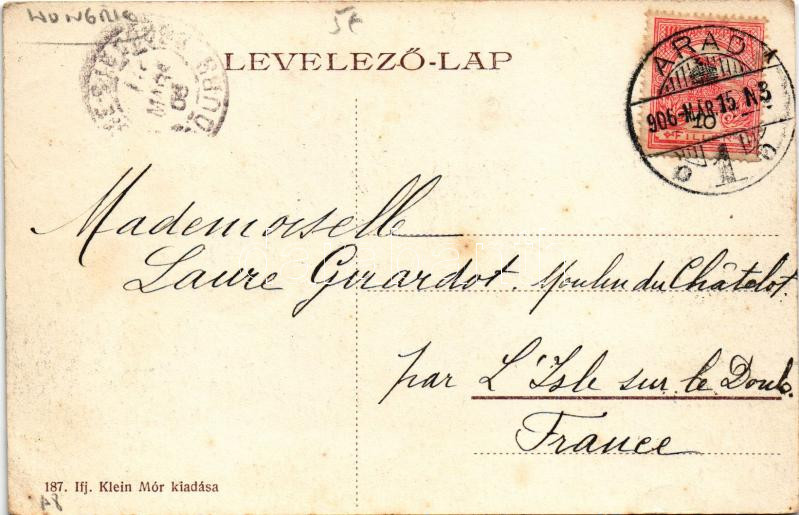 HONGRIE
5f
LEVELEZŐ-LAP
ARAD 1
906-MAR.15.N3
10
FILLÉR
1
MARS
06
DOUBS
Mademoiselle
Laure Girardot. Moulin du Châtelot
par L'Isle sur le Doubs.
France
187. Ifj. Klein Mór kiadása